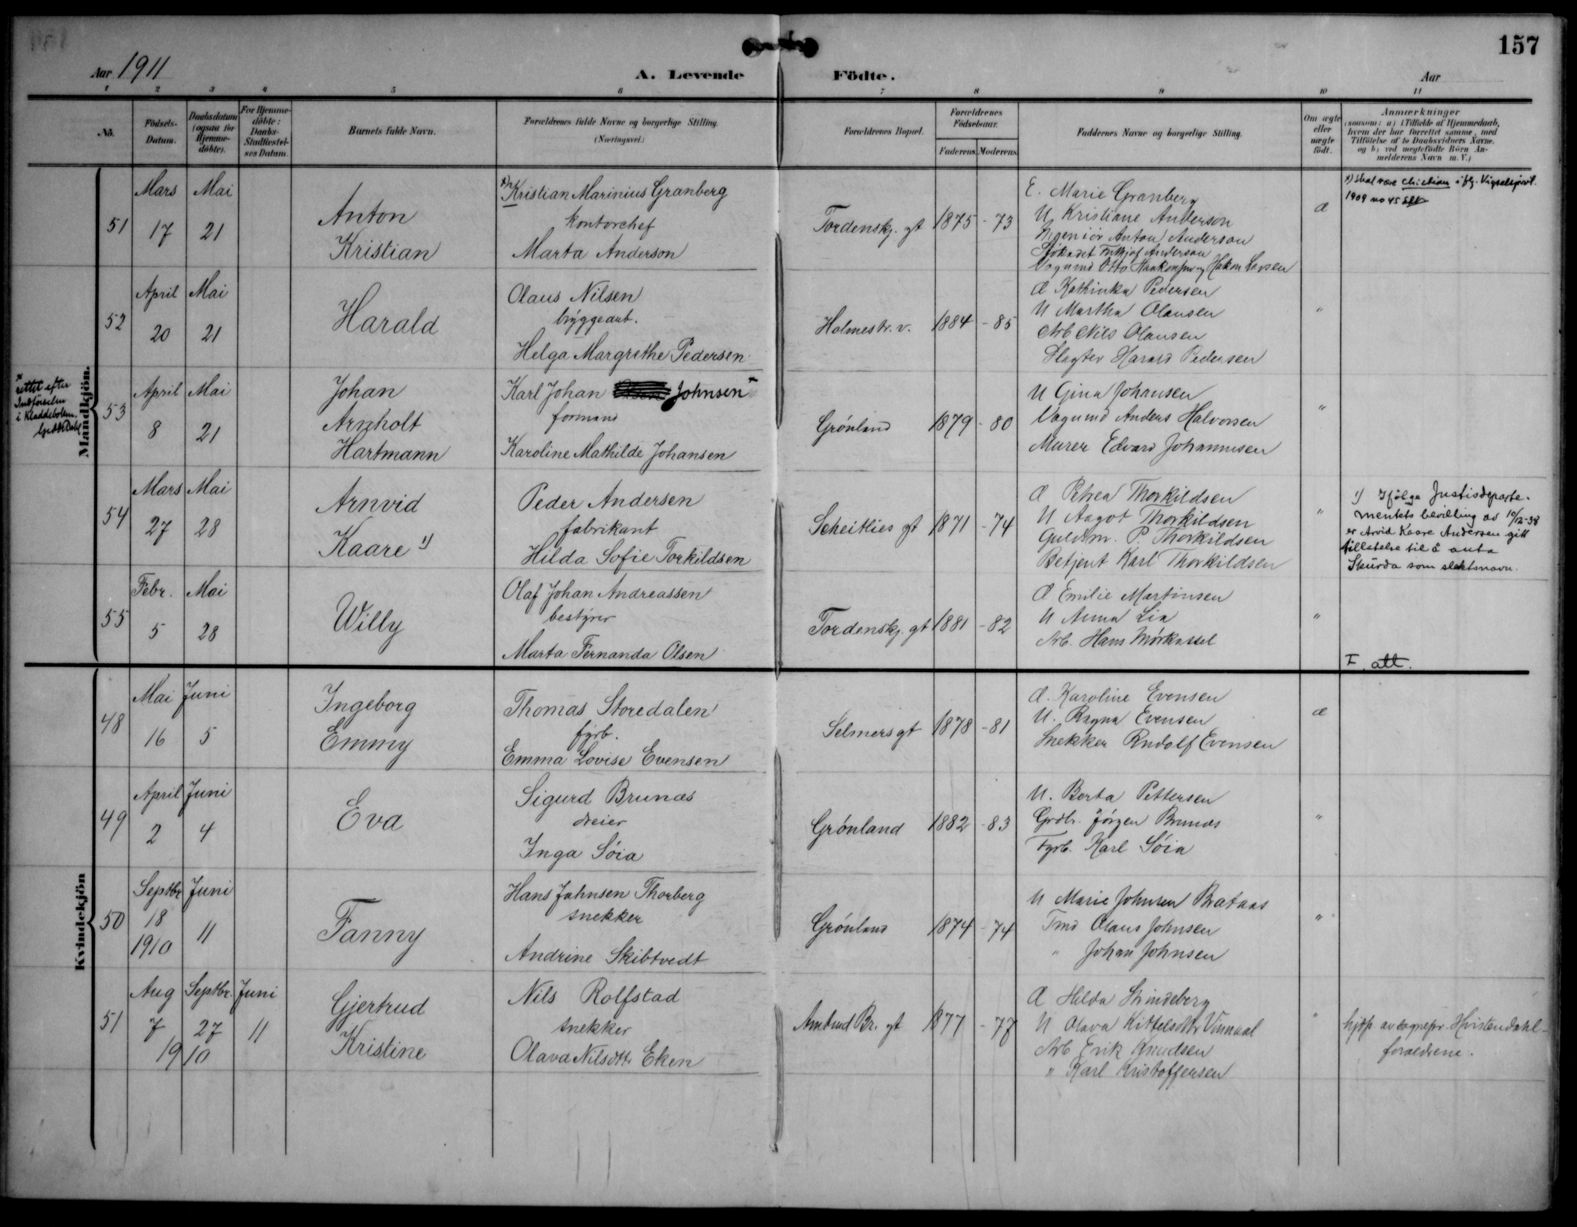 157
Aar 1911
A. Levende Födte.
Aar
1 2 3 4 5 6 7 8 9 10 11
No.
Födsels-Datum.
Daabsdatum (ogsaa for Hjemme-döbte).
For Hjemme-döbte: Daabs-Stadfæstel-ses Datum.
Barnets fulde Navn.
Forældrenes fulde Navne og borgerlige Stilling.
(Næringsvei.)
Forældrenes Bopæl.
Forældrenes Födselsaar.
Faderens. Moderens.
Faddernes Navne og borgerlige Stilling.
Om ægte eller uægte födt.
Anmærkninger
(saasom: a) i Tilfælde af Hjemmedaab,
hvem der har forrettet samme, med
Tilföielse af to Daabsvidners Navne.
og b) ved uægtefödte Börn An-
melderens Navn m. V.)
Mandkjön.
51
Mars 17
Mai 21
Anton
Kristian
Kristian Marinius Granberg
kontorchef
Marta Anderson
Tordenskj. gt
1875 - 73
E. Marie Granberg
U Kristiane Anderson
Ingeniör Anton Anderson
æ
1) skal være Christian
1909 no 45
52
April 20
Mai 21
Harald
Olaus Nilsen
byggearb.
Helga Margrethe Pedersen
Holmestr. v.
1884 - 85
Æ Kathinka Pedersen
U Martha Olausen
Arb Nils Olausen
Slagter Harald Pedersen
"
x
rettet efter
Indförselen
i Kladdeboken.
53
April 8
Mai 21
Johan
Arnholt
Hartmann
Karl Johan Johnsen x
formand
Karoline Mathilde Johansen
Grönland
1879 - 80
U Gina Johansen
Vognmd Anders Halvorsen
Murer Edvard Johannesen
"
54
Mars 27
Mai 28
Arnvid
Kaare 1)
Peder Andersen
fabrikant
Hilda Sofie Torkildsen
Scheitlies gt
1871 - 74
Æ Petrea Thorkildsen
U Aagot Thorkildsen
Guldsm. P. Thorkildsen
Betjent Karl Thorkildsen
"
1) Ifølge Justisdeparte-
mentets bevilling av 10/12-38
er Arvid Kaare Andersen gitt
tillatelse til å anta
Skurda som slektsnavn.
55
Febr. 5
Mai 28
Willy
Olaf Johan Andreassen
bestyrer
Marta Fernanda Olsen
Tordenskj. gt
1881 - 82
Æ Emilie Martinsen
U Anna Lia
Arb. Hans Mörkassel
"
F. att.
Kvindekjön
48
Mai 16
Juni 5
Ingeborg
Emmy
Thomas Storedalen
fyrb.
Emma Lovise Evensen
Selmers gt
1878 - 81
Æ. Karoline Evensen
U. Ragna Evensen
Snekker Rudolf Evensen
æ
49
April 2
Juni 4
Eva
Sigurd Brunæs
dreier
Inga Söia
Grönland
1882 - 83
U. Berta Pettersen
Grdbr. Jörgen Brunæs
Fyrb. Karl Söia
"
50
Septbr 18 1910
Juni 11
Fanny
Hans Johnsen Thorberg
snekker
Andrine Skibtvedt
Grönland
1874 - 74
U Marie Johnsen Brataas
Tmd Olaus Johnsen
" Johan Johnsen
"
51
Aug 7
Septbr 27
1910
Juni 11
Gjertrud
Kristine
Nils Rolfstad
snekker
Olava Nilsdttr Eken
Ambud Br. gt
1877 - 77
Æ Hilda Strindeberg
U Olava Kittelsdttr
Arb Erik Knudsen
" Karl Kristoffersen
"
hjdp av sognepr. Hvistendahl -
forældrene.